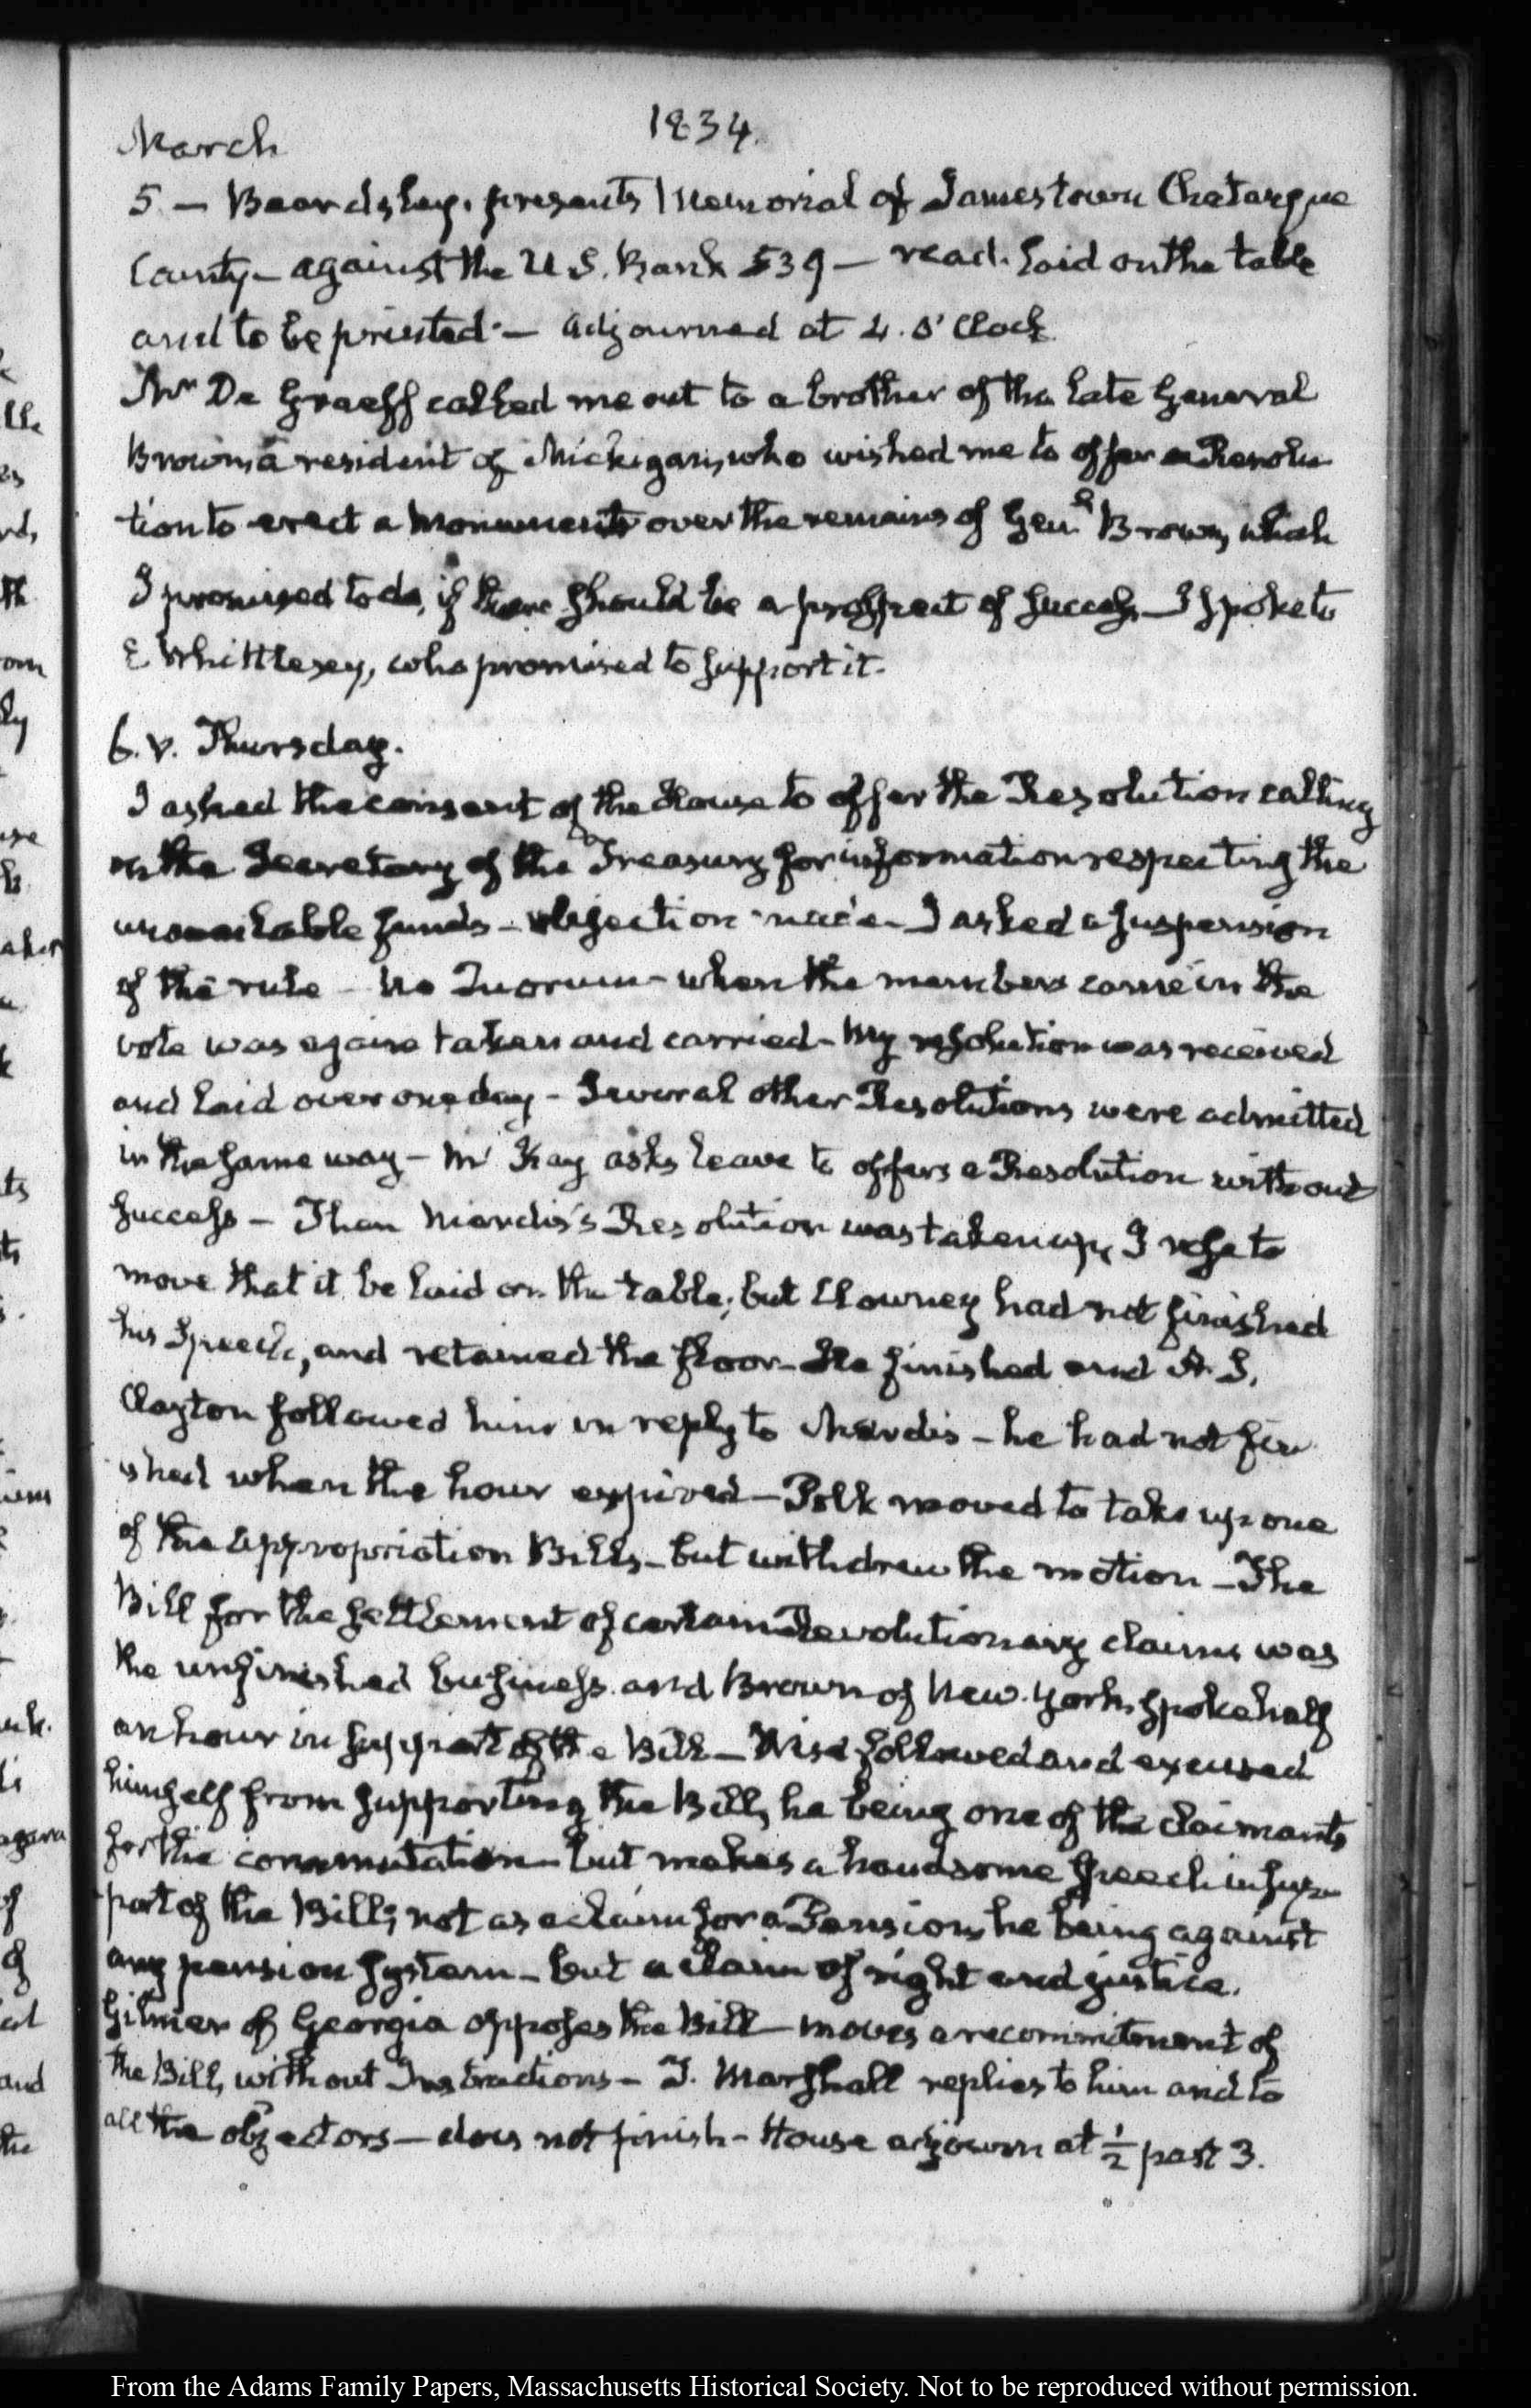 1834.
March
5 — Beardsley. presents 1 Memorial of Jamestown Chatauque
County — against the U.S. Bank 539 — read. laid on the table
and to be printed. — adjourned at 4. O'Clock
Mr De Graeff called me out to a brother of the late General
Brown, a resident of Michigan, who wished me to offer a Resolu
tion to erect a Monument over the remains of Genl. Brown, which
I promised to do, if there should be a prospect of success — I spoke to
E Whittlesey, who promised to support it.
6. V. Thursday.
I asked the consent of the House to offer the Resolution calling
on the Secretary of the Treasury for information respecting the
unavailable funds — objection made — I asked a suspension
of the rule — no Quorum — when the members came in the
vote was again taken and carried — My resolution was received
and laid over one day — Several other Resolutions were admitted
in the same way — Mc Kay asks leave to offers a Resolution without
success — Then Mardis's Resolution was taken up, I rose to
move that it be laid on the table; but Clowney had not finished
his Speech, and retained the floor — He finished and A. S.
Clayton followed him in reply to Mardis — he had not fin
ished when the hour expired — Polk moved to take up one
of the appropriation Bills — but withdrew the motion — The
Bill for the settlement of certain Revolutionary claims was
the unfinished business and Brown of New-York, spoke half
an hour in support of the Bill — Wise followed and excused
himself from supporting the Bill, he being one of the claimants
for the commutation — but makes a handsome speech in sup
port of the Bill; not as a claim for a Pension, he being against
any pension system — but a claim of right and justice.
Gilmer of Georgia opposes the Bill — moves a recommitment of
the Bill, without Instructions — T. Marshall replies to him and to
all the objectors — does not finish — House adjourn at ½ past 3.
From the Adams Family Papers, Massachusetts Historical Society. Not to be reproduced without permission.